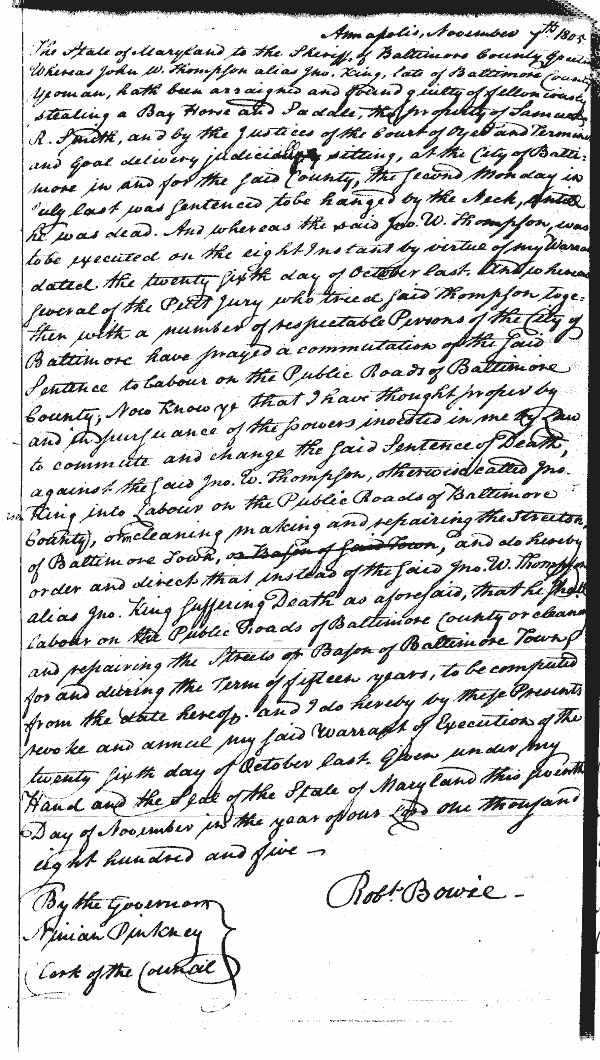 Annapolis, November 7th 1805
The State of Maryland to the Sheriff of Baltimore County Greeting
Whereas John W. Thompson alias Jno. King, late of Baltimore County
Yeoman, hath been arraigned and found guilty of felloniously
stealing a Bay Horse and Saddle, the property of Samuel
R. Smith, and by the Justices of the Court of Oyer and Terminer
and Goal delivery judicially sitting, at the City of Balti=
more in and for the said County, the second Monday in
July last was sentenced to be hanged by the Neck, untill
he was dead. And whereas the said Jno. W. Thompson, was
to be executed on the eight Instant by virtue of my Warrant
dated the twenty sixth day of October last. And whereas
several of the Petit Jury who tried said Thompson, toge=
ther with a number of respectable Persons of the City of
Baltimore have prayed a commutation of the said
Sentence to Labour on the Public Roads of Baltimore
County; Now Know ye that I have thought proper by
and in pursuance of the powers invested in me by Law
to commute and change the said Sentence of Death,
against the said Jno. W. Thompson, otherwise called Jno.
King into Labour on the Public Roads of Baltimore
County, or cleaning making and repairing the Streets
of Baltimore Town, or Bason of said Town, and do hereby
order and direct that instead of the said Jno. W. Thompson
alias Jno. King suffering Death as aforesaid, that he shall
labour on the Public Roads of Baltimore County or cleaning
and repairing the Streets or Bason of Baltimore Town
for and during the Term of fifteen years, to be computed
from the date hereof. and I do hereby by these Presents
revoke and annul my said Warrant of Execution of the
twenty sixth day of October last. Given under my
Hand and the Seal of the State of Maryland this seventh
Day of November in the year of our Lord one thousand
eight hundred and five
Robt. Bowie
By the Governor
Ninian Pinkney
Clerk of the Council